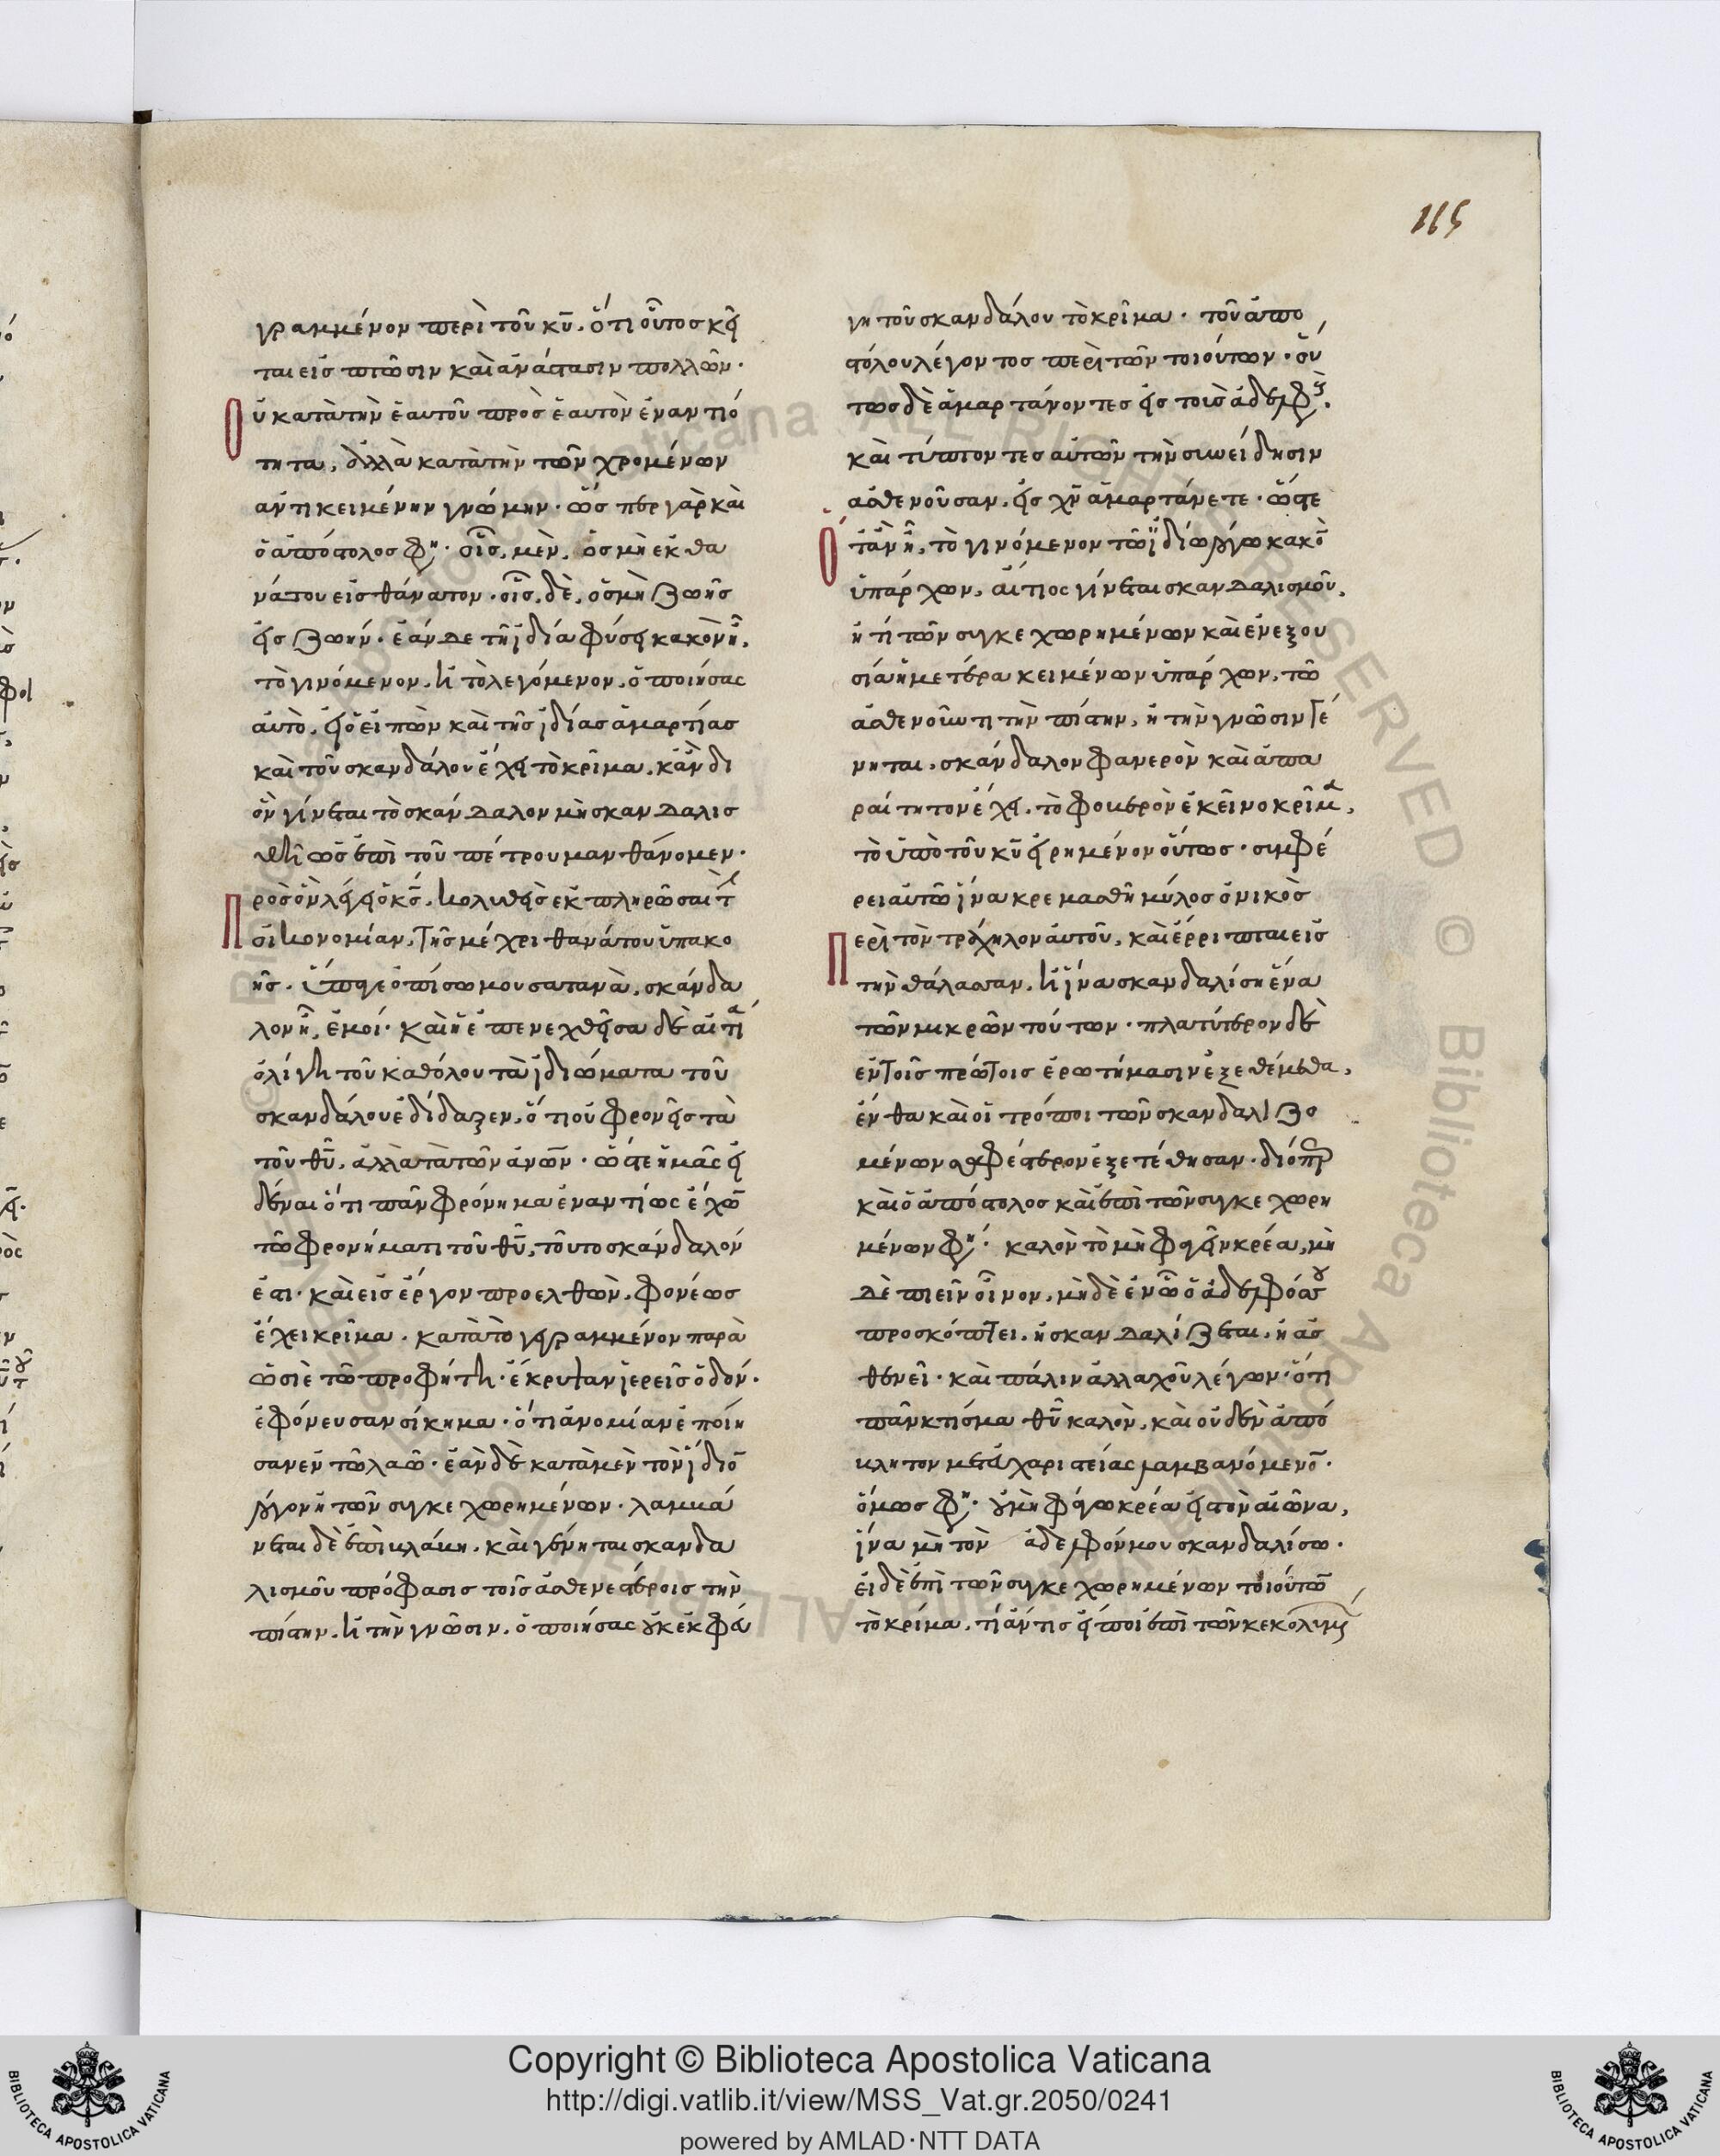 115
γραμμένον περὶ τοῦ κῦ. ὅτι οὗτος κεῖ
ται εἰς πτῶσιν καὶ ἀνάστασιν πολλῶν·
Οὐ κατὰ τὴν ἑαυτοῦ πρὸς ἑαυτὸν ἐναντιό
τητα, ἀλλὰ κατὰ τὴν τῶν χρομένων
ἀντικειμένην γνώμην· ὥσπερ γὰρ καὶ
ὁ ἀπόστολος φη· οἷς, μὲν, ὀσμὴ ἐκ θα
νάτου εἰς θάνατον· οἷς, δὲ, ὀσμὴ ζωῆς
εἰς ζωήν· ἐάν δε τῆ ϊδία φύσει κακὸν ἦ,
τὸ γινόμενον, ἢ τὸ λεγόμενον, ὁ ποιήσας
αὐτὸ, ἢ ὁ εἰπὼν καὶ τῆς ϊδίας ἁμαρτίας
καὶ τοῦ σκανδάλου ἔχει τὸ κρῖμα, κἂν δι
ὃν γίνεται τὸ σκάνδαλον μὴ σκανδαλισ
θῆ ὡς ἐπὶ τοῦ πέτρου μανθάνομεν·
Πρὸς ὃν λέγει ὁ κς, κολυθεὶς ἐκπληρῶσαι τ
οἰκονομίαν, τῆς μέχρι θανάτου ὑπακο
ῆς. ὕπαγε ὀπίσω μου σατανὰ, σκάνδα
λον ἦ, ἐμοί· καὶ ἡ ἐπενεχθεῖσα δὲ αἰτία
ὀλίγη τοῦ καθόλου τὰ ϊδιώματα τοῦ
σκανδάλου ἐδίδαξεν, ὅτι οὐ φρονεῖς τὰ
τοῦ θῦ, ἀλλα τὰ τῶν ἀνων· ὥστε ἡμᾶς εἰ
δέναι ὅτι πᾶν φρόνημα ἐναντίως ἔχω
τῶ φρονήματι τοῦ θῦ, τοῦτο σκάνδαλόν
ἐστι· καὶ εἰς ἔργον προελθὼν, φονέως
ἔχει κρῖμα· κατὰ τὸ γεγραμμένον παρὰ
ὠσιὲ τῶ προφήτη· ἔκρυψαν ϊερεῖς ὁδόν·
ἐφόνευσαν σίκημα· ὅτι ἀνομίαν ἐποίη
σαν ἐν τῶ λαῶ· ἐὰν δὲ κατὰ μὲν τὸν ϊδιο
ἔργον ἦ τῶν συγκεχωρημένων· λαμμά
νεται δὲ ἐπὶ κλάκη, καὶ γένηται σκανδα
λισμοῦ πρόφασις τοῖς ἀσθενεστέροις τὴν
πίστιν, ἢ τὴν γνῶσιν, ὁ ποιήσας οὐκ ἐκφεύ
γη τοῦ σκανδάλου τὸ κρῖμα· τοῦ ἀπο
στόλου λέγοντος περὶ τῶν τοιούτων· οὕ
τως δὲ ἁμαρτάνοντες εἰς τοὺς ἀδελφ.
καὶ τύπτοντες αὐτῶν τὴν συνείδησιν
ἀσθενοῦσαν, εἰς χν ἁμαρτάνετε· ὥστε
Ὅταν ἦ, τὸ γινόμενον τῶ ϊδίω λόγω κακὸ
ὑπάρχων, αἴτιος γίνεται σκανδαλισμοῦ,
ἤ τί τῶν συγκεχωρημένων καὶ ἐν ἐξου
σία ἡμετέρα κειμένων ὑπάρχων, τῶ
ἀσθενοῦντι τὴν πίστην, ἢ τὴν γνῶσιν γέ
νηται, σκάνδαλον φανερὸν καὶ ἀπα
ραίτητον ἔχει, τὸ φουερὸν ἐκεῖνο κρῖμα,
τὸ ὑπὸ τοῦ κῦ εἰρημένον οὕτως· συμφέ
ρει αὐτῶ ϊνα κρεμασθῆ μύλος ὀνικὸς
Περὶ τὸν τράχηλον αὐτοῦ, καὶ ἔρριπται εἰς
τὴν θάλασσαν, ἢ ϊνα σκανδαλίση ἕνα
τῶν μικρῶν τούτων· πλατύτερον δὲ
ἐν τοῖς πρώτοις ἐρωτήμασιν ἐξεθέμεθα,
ἔνθα καὶ οἱ τρόποι τῶν σκανδαλιζο
μένων σαφέστερον ἐξετέθησαν· διόπερ
καὶ ὁ ἀπόστολος καὶ ἐπὶ τῶν συγκεχωρη
μένων φη· καλὸν τὸ μὴ φαγεῖν κρέα, μὴ
δὲ πιεῖν οἶνον, μὴ δὲ ἐν ὧ ὁ ἀδελφός σου
προσκόπτει, ἢ σκανδαλίζεται, ἢ ἀσ
θενεῖ· καὶ πάλιν ἀλλαχοῦ λέγων· ὅτι
πᾶν κτίσμα θῦ καλὸν, καὶ οὐδὲν ἀπό
κλητον μετὰ χαριστείας λαμβανόμενο·
ὅμως φη· οὐ μὴ φάγω κρέα εἰς τὸν αἰῶνα,
ϊνα μὴ τὸν ἀδελφόν μου σκανδαλίσω·
εἰ δὲ ἐπὶ τῶν συγκεχωρημένων τοιοῦτο
τὸ κρίμα, τί ἄν τις εἴποι ἐπὶ τῶν κεκολυμ
Copyright © Biblioteca Apostolica Vaticana
http://digi.vatlib.it/view/MSS_Vat.gr.2050/0241
powered by AMLAD·NTT DATA
BIBLIOTECA APOSTOLICA VATICANA
BIBLIOTECA APOSTOLICA VATICANA